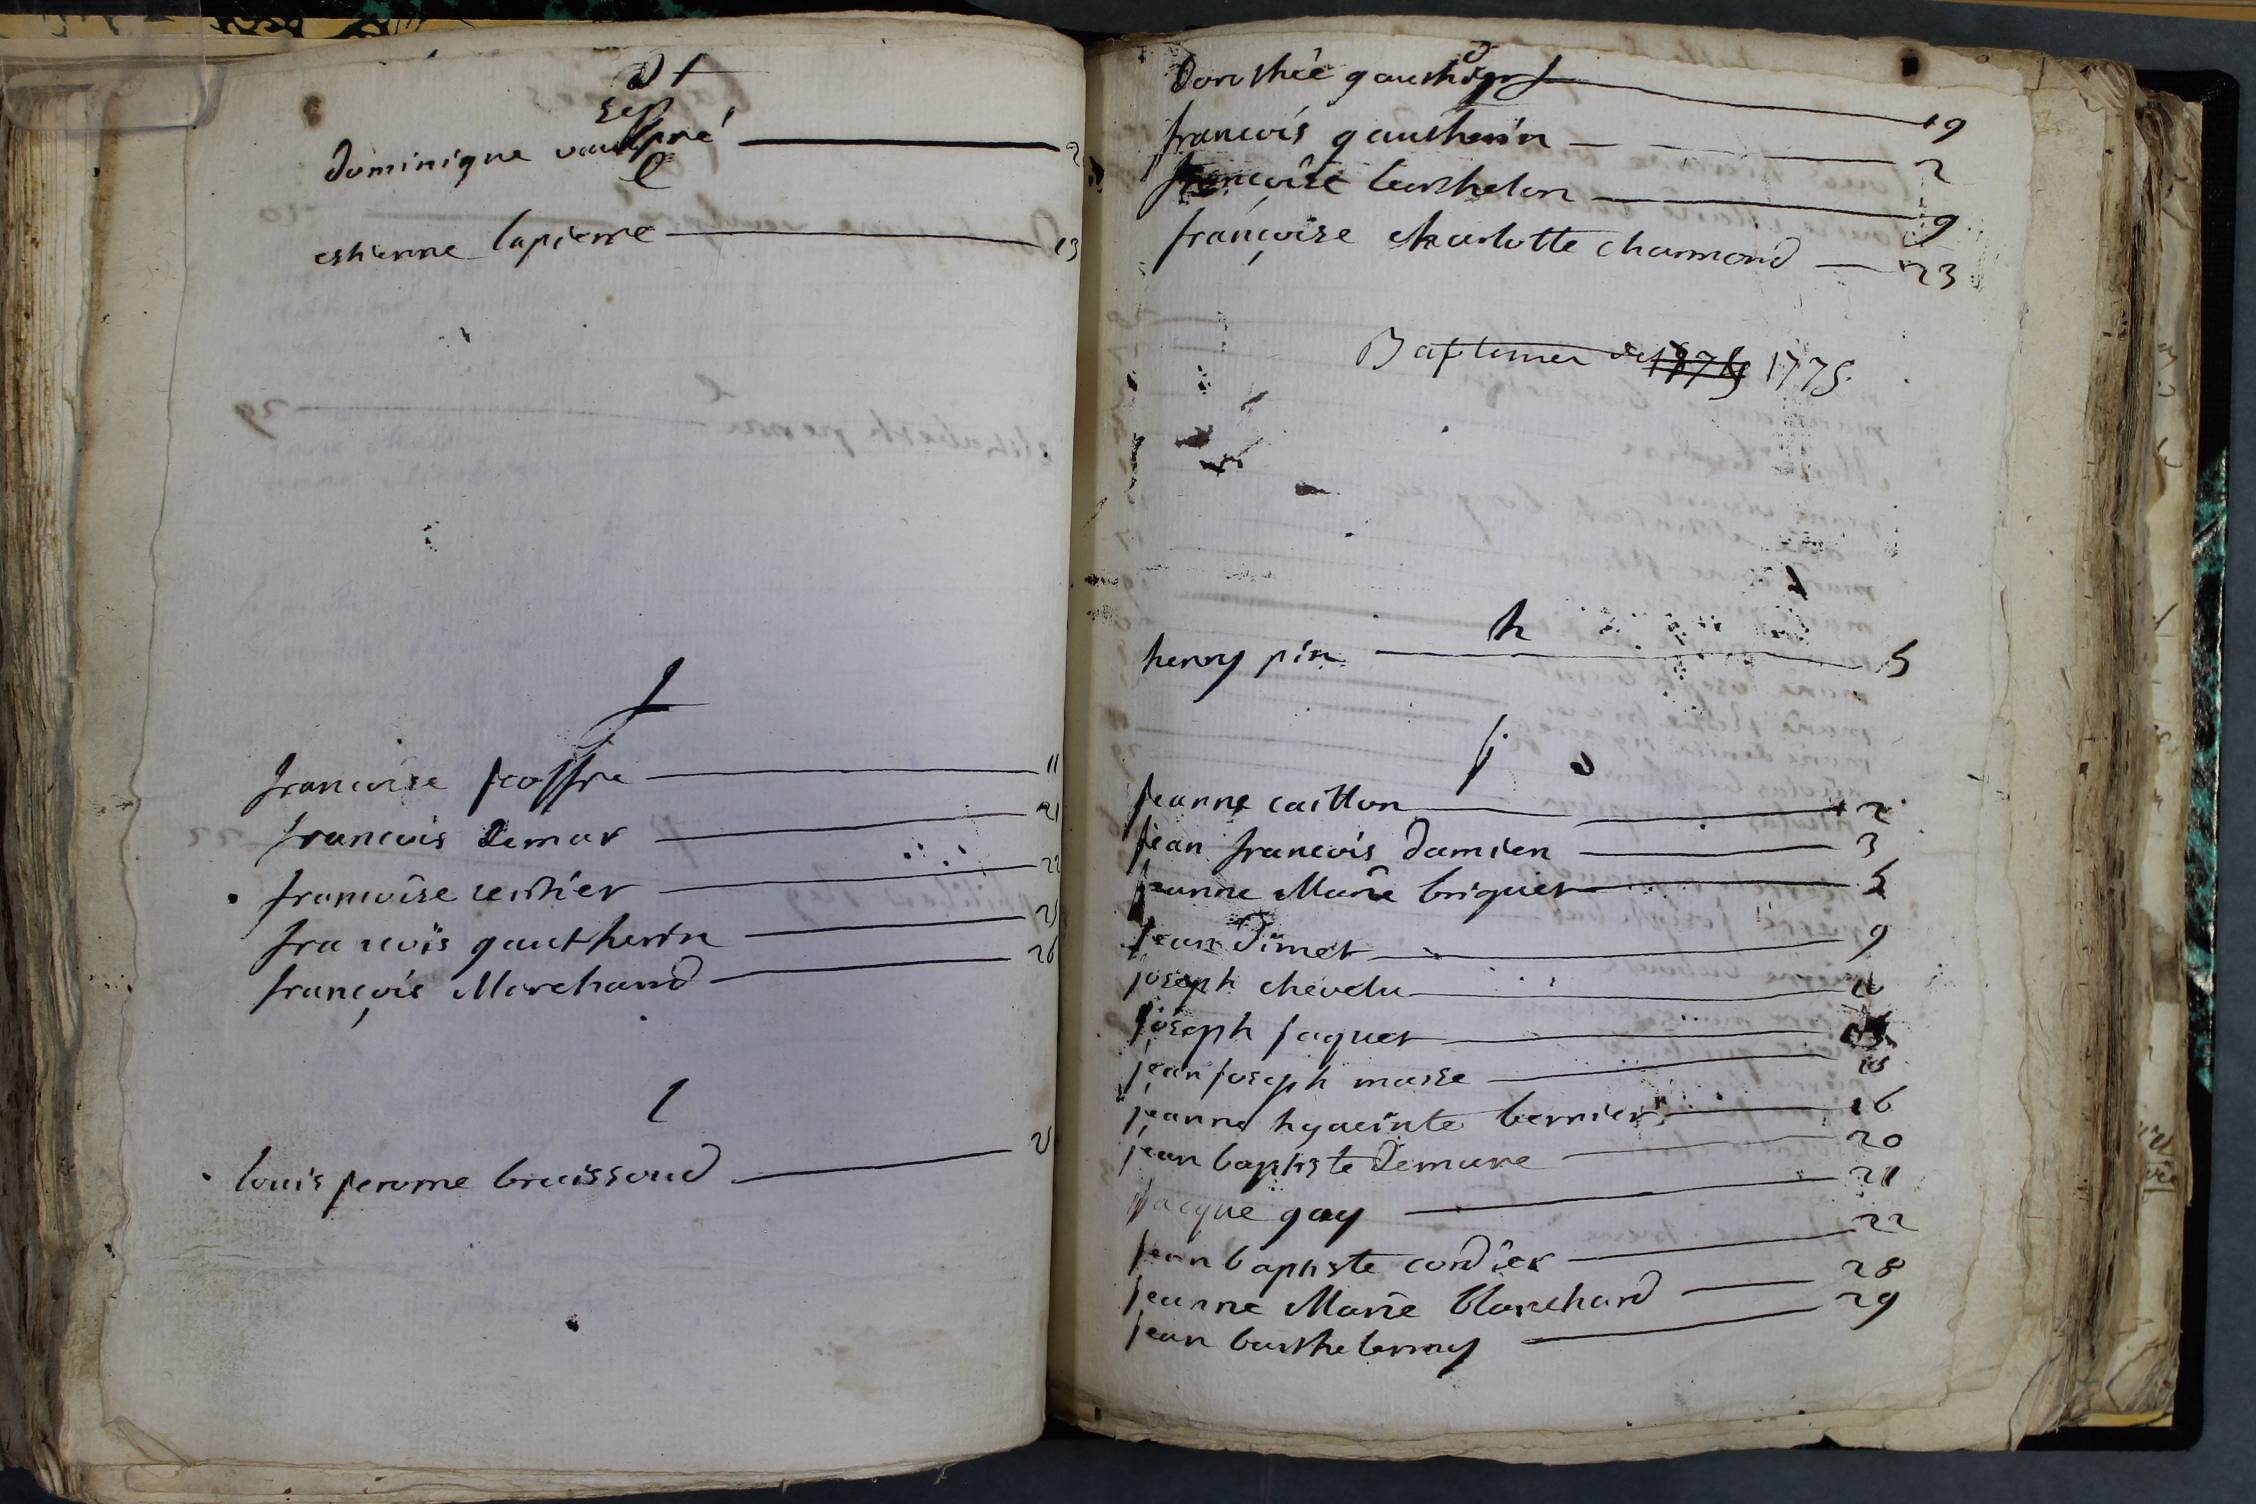 D
dominique vaulpré 2
e
estienne lapierre 13
f
francoise joffre 11
francois demar 21
francoise 22
francois gautherin 21
françois Marchand 26
l
louis jerome braissoud 21
Dorothée 19
francois gautherin 2
francoise berthelon 9
françoise charlotte charmond 23
Baptemes de 1775
h
henry pin 5
j
jeanne caillon 2
jean francois damien 3
jeanne Marie briquet 5
jean dimet 9
joseph chevelu
joseph jaquet
jean joseph masse 15
jeanne hyacinte bernier 16
jean baptiste demare 20
jacque gay 21
jean baptiste cordier 22
jeanne Marie blanchard 28
jean barthelemy 29